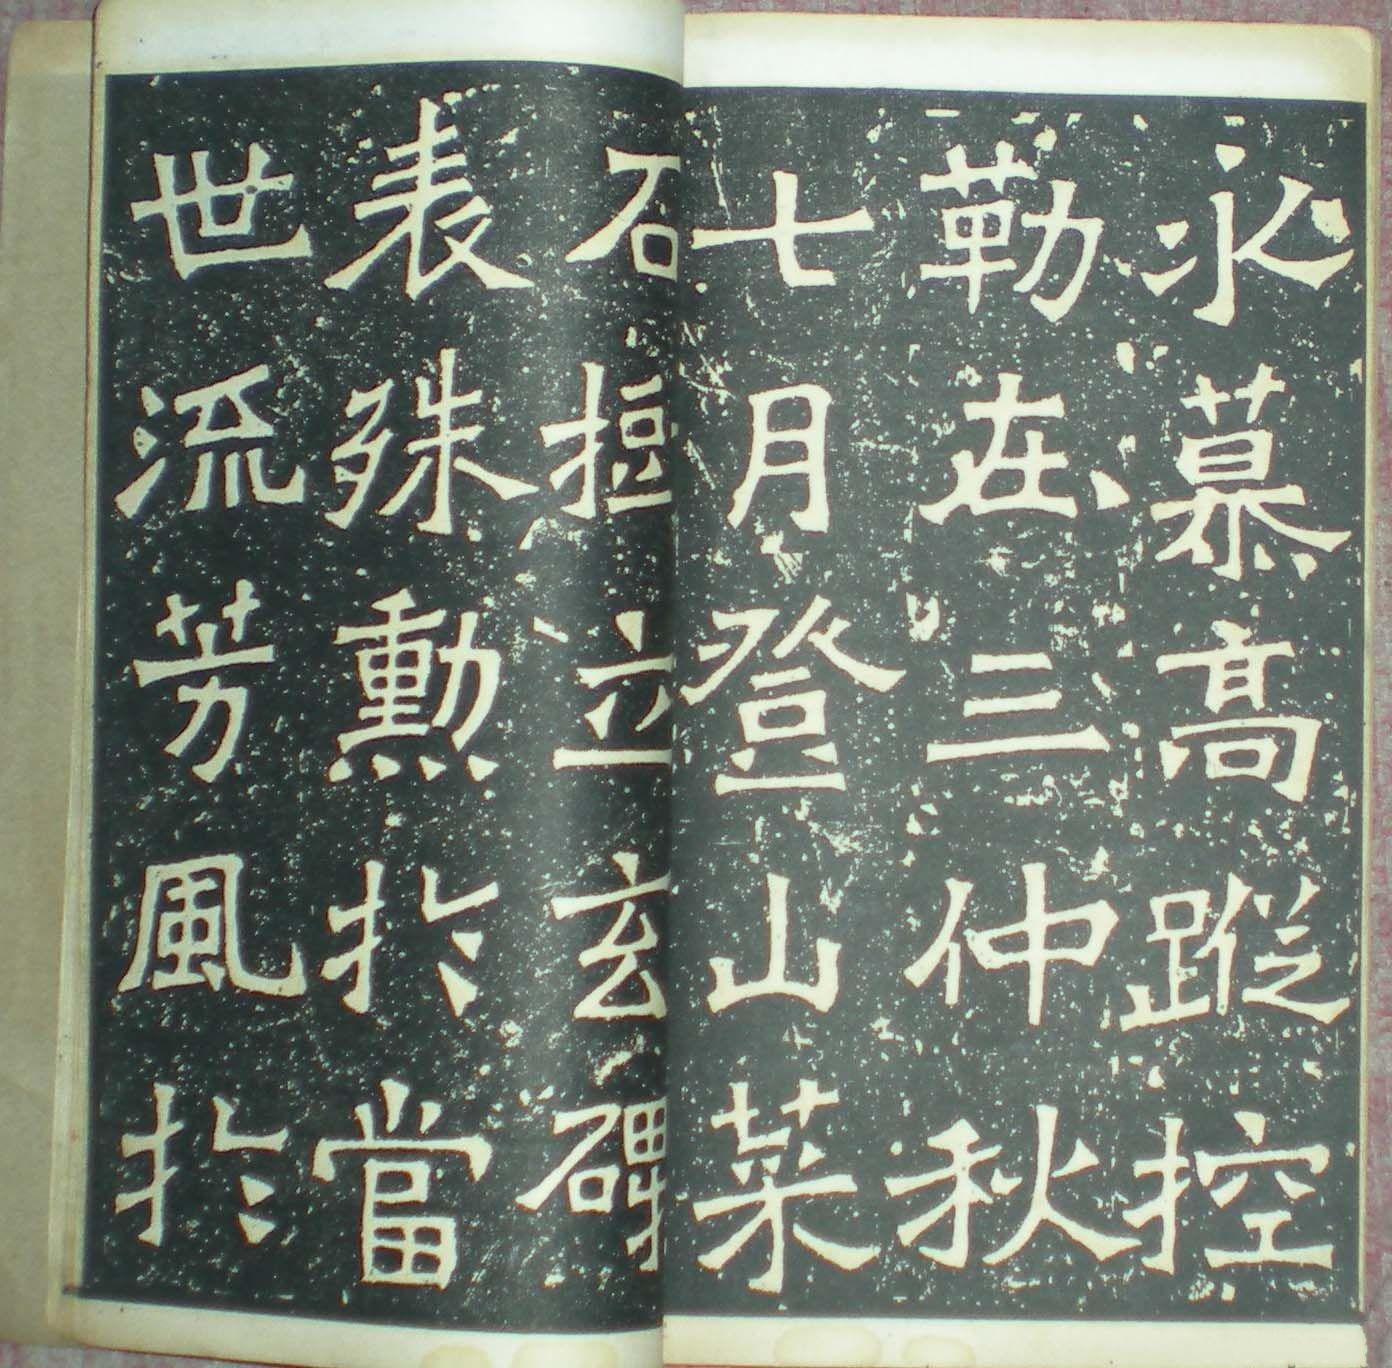 永慕高蹤控
勒在三仲秋
七月登山菜
石立玄碑
表殊勳於當
世流芳風於